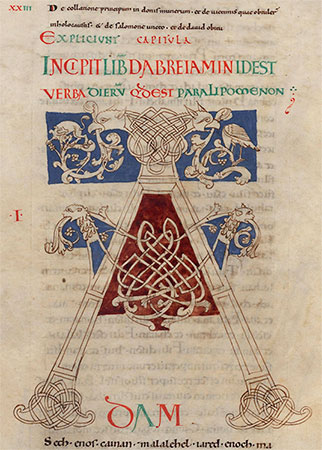 XXIII De collatione principum in donis munerum. et de victimis quas obtuler̄
in holocaustis. et de salomone uncto. et de dauid obitu
EXPLICIUNT CAPITULA
INCIPIT LIB DABREIAMIN IDEST
VERBA DIERŪ QDEST PARALIPOMENON
I A
DAM
Seth. enos. cainan. malalehel. iared. enoch. ma